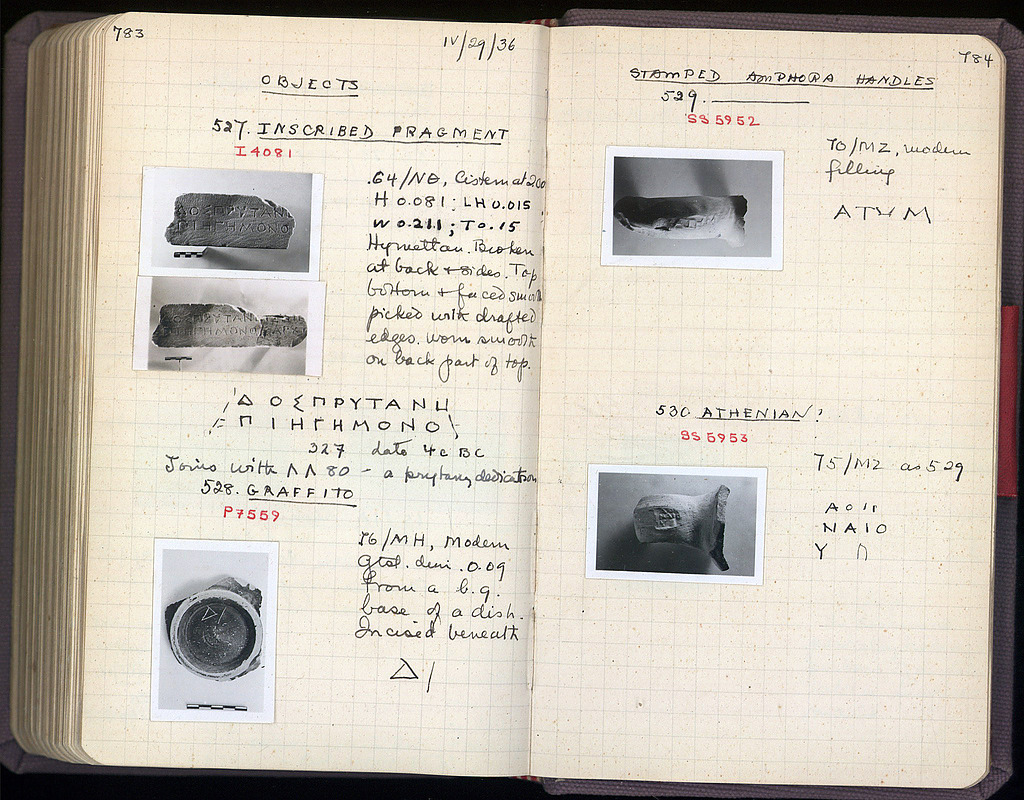 783
IV/29/36
OBJECTS
527. INSCRIBED FRAGMENT
I 4081
64/ΝΘ, Cistern at 200
H 0.081; LH 0.015
W 0.211; T 0.15
Hymettan. Broken
at back + sides. Top
bottom + faced smooth
picked with drafted
edges. worn smooth
on back part of top.
ΔΟΣΠΡΥΤΑΝ
ΠΙΗΓΗΜΟΝΟ
327 date 4c BC
Joins with ΛΛ 80 - a prytany dedication
528. GRAFFITO
P 7559
76/ΜΗ, Modern
Gtst. dim. 0.09
From a b.g.
base of a dish.
Incised beneath
Δ/
784
STAMPED AMPHORA HANDLES
529.
SS 5952
70/ΜΖ, modern
filling
530 ATHENIAN?
SS 5953
75/ΜΖ as 529
ΝΑΙΟ
Υ Π